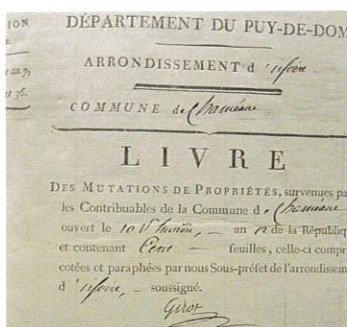 ION
DÉPARTEMENT DU PUY-DE-DOM
ARRONDISSEMENT d'issoire
36.
COMMUNE de Chaméane
LIVRE
DES MUTATIONS DE PROPRIÉTÉS, survenues pa
les Contribuables de la Commune de Chaméane
ouvert le 10 an 12 de la Républiq
et contenant Cent feuilles, celle-ci compr
cotées et paraphées par nous Sous-préfet de l'arrondissem
d'issoire, soussigné.
Girot